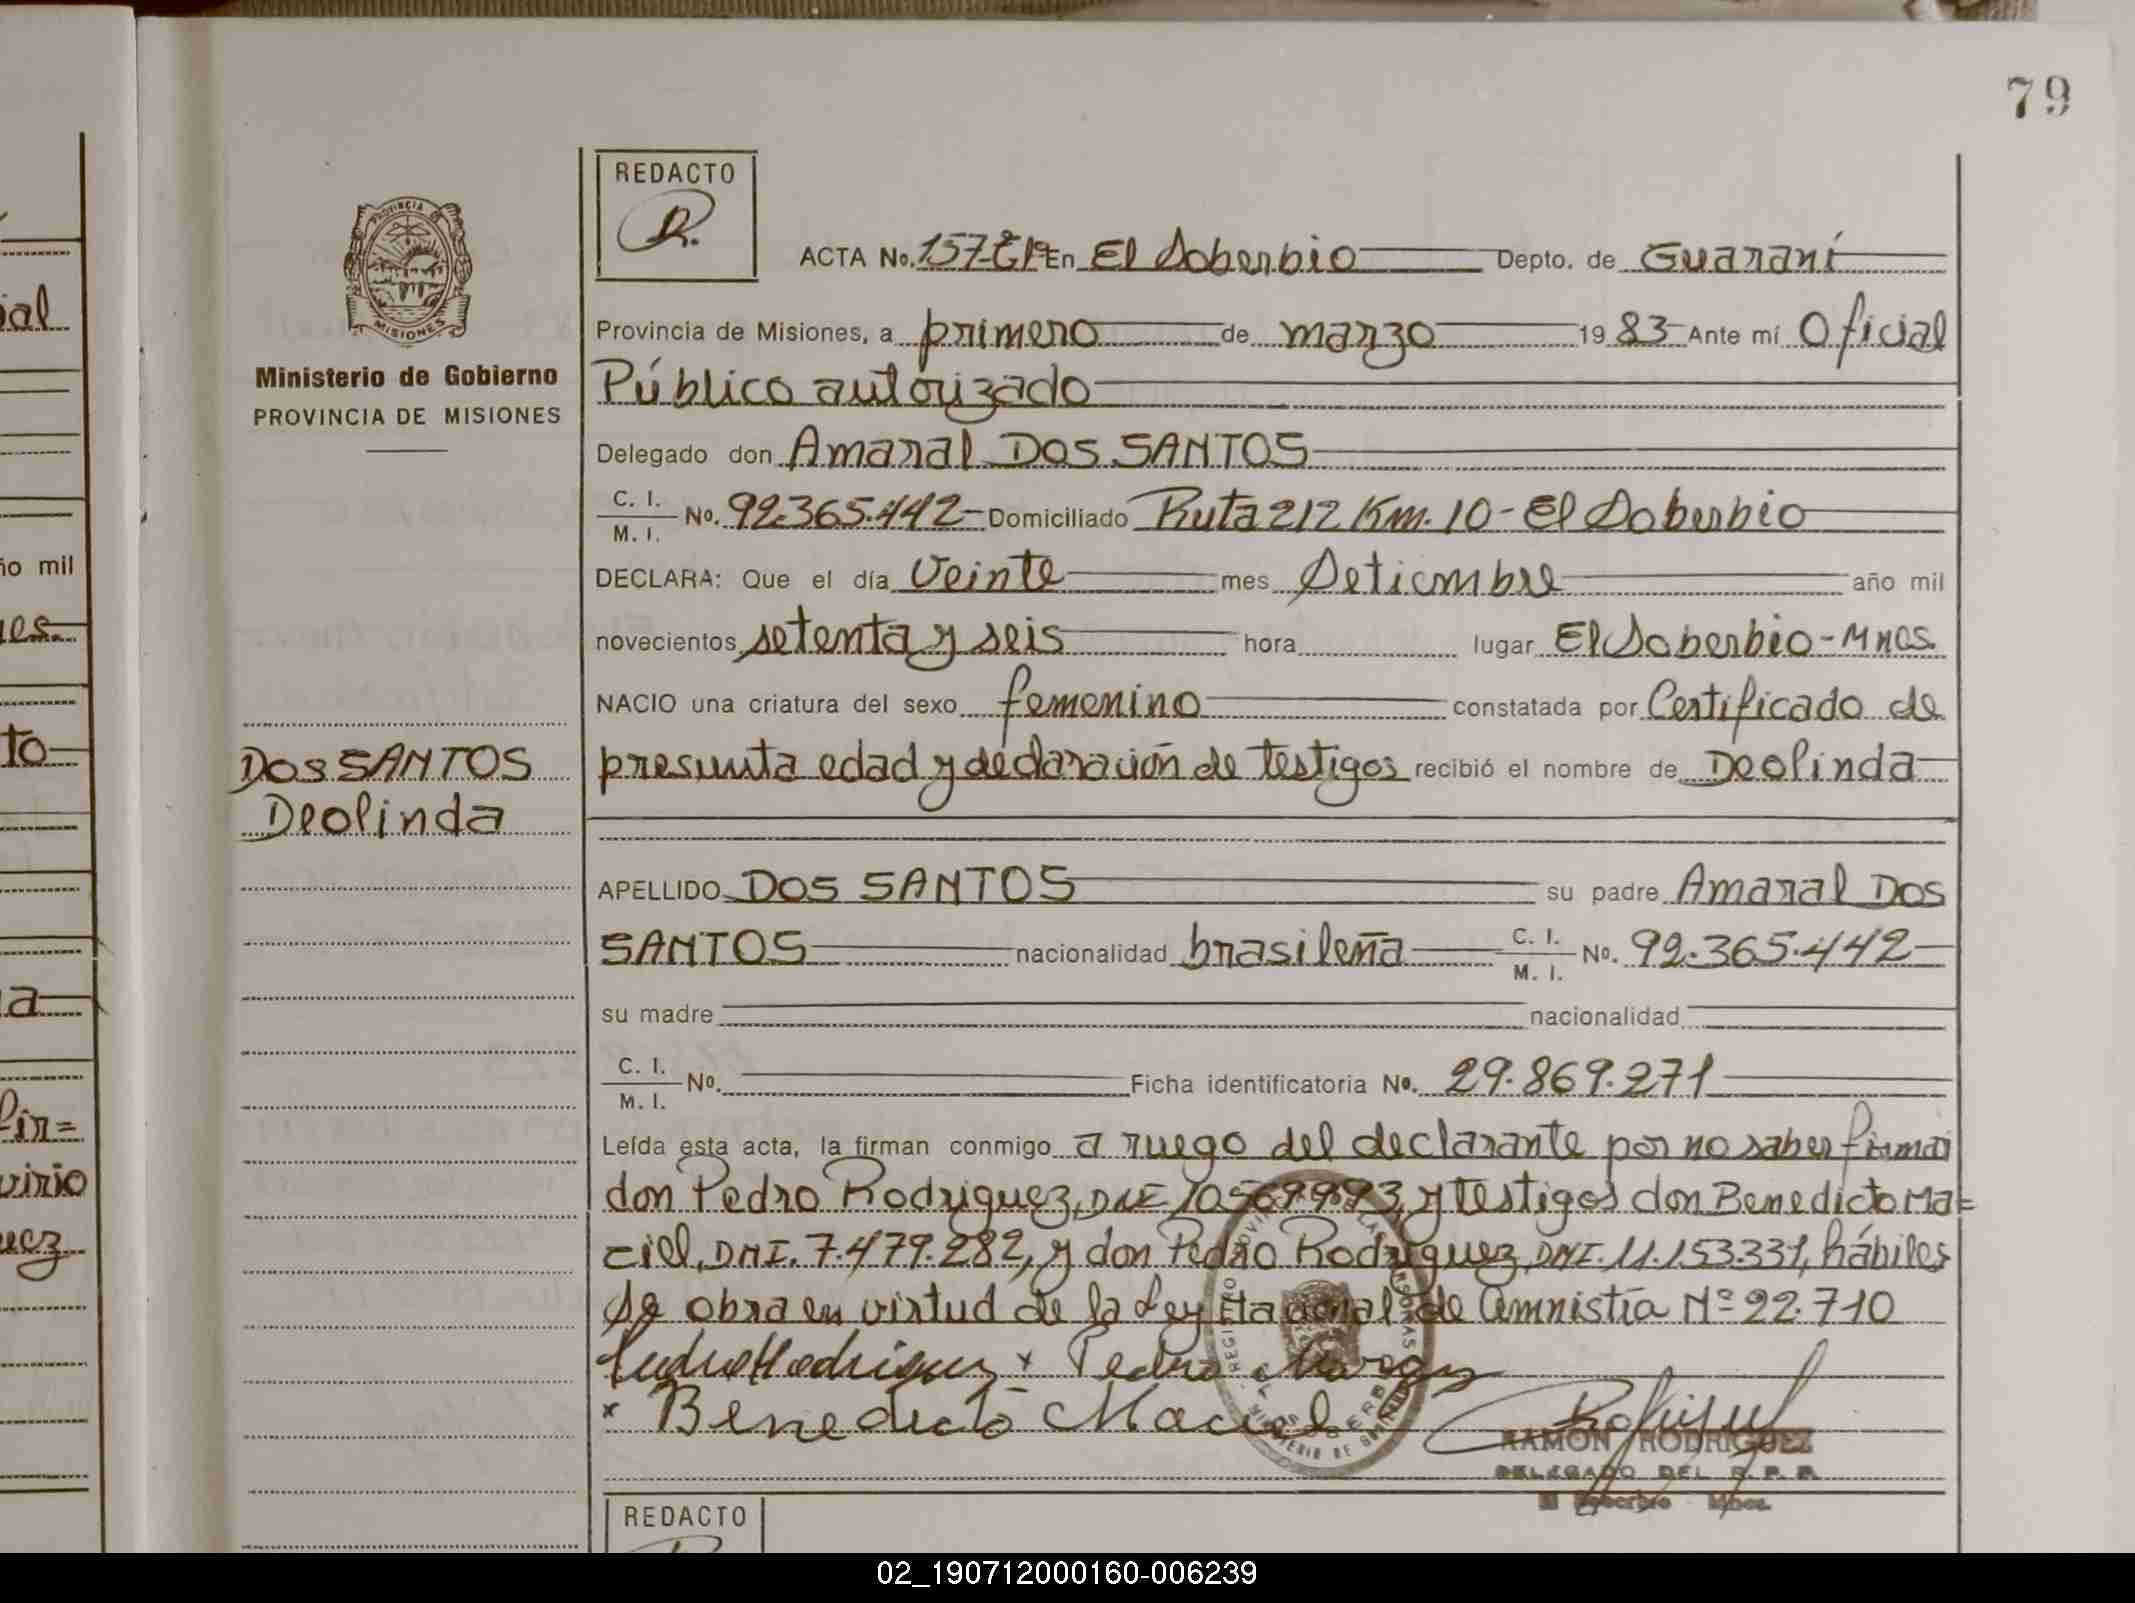 79
REDACTO
R.
ACTA No. 157-T1º En El Soberbio Depto. de Guaraní
Provincia de Misiones, a primero de marzo 1983 Ante mí Oficial
Público autorizado
Delegado don Amaral DOS SANTOS
C. I. / M. I. No. 92.365.442- Domiciliado Ruta 212 Km. 10 - El Soberbio
DECLARA: Que el día Veinte mes Setiembre año mil
novecientos setenta y seis hora lugar El Soberbio - Mnes.
NACIO una criatura del sexo femenino constatada por Certificado de
presunta edad y declaración de testigos recibió el nombre de Deolinda
APELLIDO DOS SANTOS su padre Amaral DOS
SANTOS nacionalidad brasileña C. I. / M. I. No. 92.365.442
su madre nacionalidad
C. I. / M. I. No. Ficha identificatoria No. 29.869.271
Leída esta acta, la firman conmigo a ruego del declarante por no saber firmar
don Pedro Rodriguez, DNI 10.569.993, y testigos don Benedicto Ma=
ciel, DNI. 7.479.282, y don Pedro Rodriguez, DNI. 11.153.331, hábiles
Se obra en virtud de la Ley Nacional de Amnistía Nº 22.710
x Pedro
x Benedicto Maciel
RAMON RODRIGUEZ
DELEGADO DEL R. P. P.
El Soberbio - Mnes.
PROVINCIA
MISIONES
Ministerio de Gobierno
PROVINCIA DE MISIONES
DOS SANTOS
Deolinda
REDACTO
ial
ño mil
es
to
a
uez
02_190712000160-006239